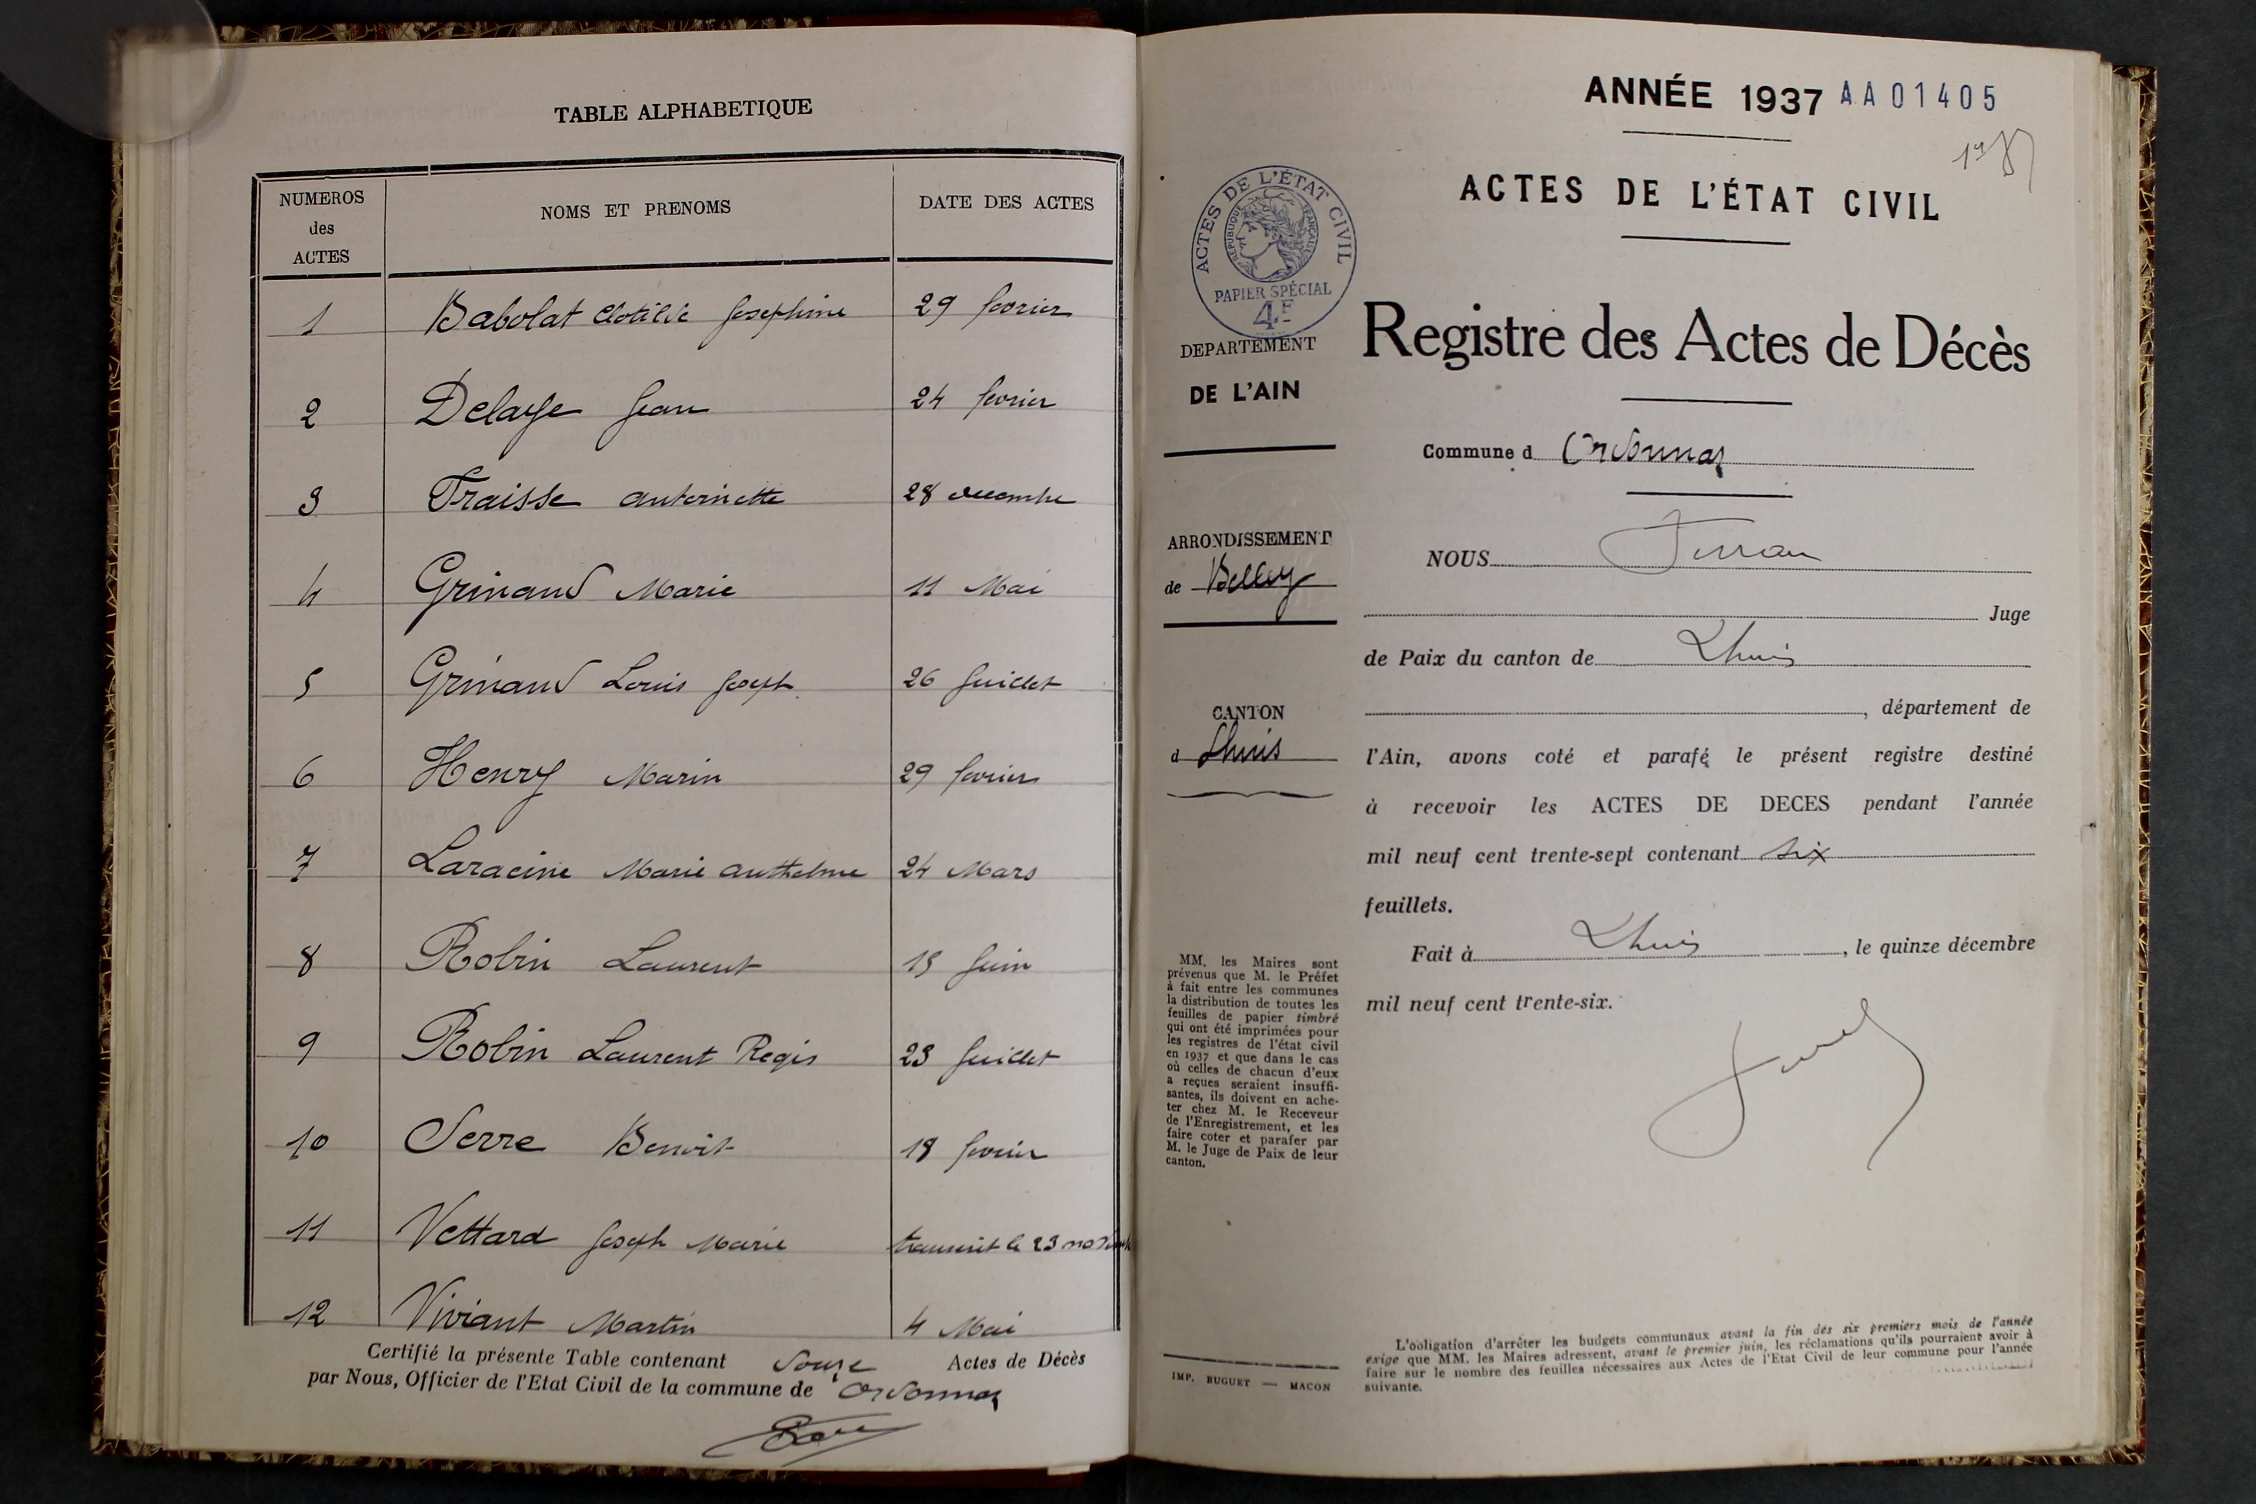 TABLE ALPHABETIQUE
NUMEROS des ACTES
NOMS ET PRENOMS
DATE DES ACTES
1 Babolat Clotilde Josephine 29 fevrier
2 Delaye Jean 24 fevrier
3 Fraisse Antoinette 28 decembre
4 Grinand Marie 11 Mai
5 Grinand Louis Joseph 26 Juillet
6 Henry Marin 29 fevrier
7 Laracine Marie Anthelme 24 Mars
8 Robin Laurent 15 Juin
9 Robin Laurent Regis 23 Juillet
10 Serre Benoit 18 fevrier
11 Vettard Joseph Marie transcrit le 23 novembre
12 Viviant Martin 4 Mai
Certifié la présente Table contenant douze Actes de Décès
par Nous, Officier de l'Etat Civil de la commune de Ordonnaz
ANNÉE 1937 AA01405
ACTES DE L'ÉTAT CIVIL
ACTES DE L'ÉTAT CIVIL
RÉPUBLIQUE FRANÇAISE
PAPIER SPÉCIAL
4F
DEPARTEMENT
DE L'AIN
Registre des Actes de Décès
Commune d Ordonnaz
ARRONDISSEMENT
de Belley
CANTON
d Lhuis
NOUS Ferran
Juge
de Paix du canton de Lhuis
, département de
l'Ain, avons coté et parafé le présent registre destiné
à recevoir les ACTES DE DECES pendant l'année
mil neuf cent trente-sept contenant six
feuillets.
Fait à Lhuis, le quinze décembre
mil neuf cent trente-six.
MM. les Maires sont
prévenus que M. le Préfet
à fait entre les communes
la distribution de toutes les
feuilles de papier timbré
qui ont été imprimées pour
les registres de l'état civil
en 1937 et que dans le cas
où celles de chacun d'eux
a reçues seraient insuffi-
santes, ils doivent en ache-
ter chez M. le Receveur
de l'Enregistrement, et les
faire coter et parafer par
M. le Juge de Paix de leur
canton.
IMP. BUGUET — MACON
L'obligation d'arrêter les budgets communaux avant la fin des six premiers mois de l'année
exige que MM. les Maires adressent, avant le premier juin, les réclamations qu'ils pourraient avoir à
faire sur le nombre des feuilles nécessaires aux Actes de l'Etat Civil de leur commune pour l'année
suivante.